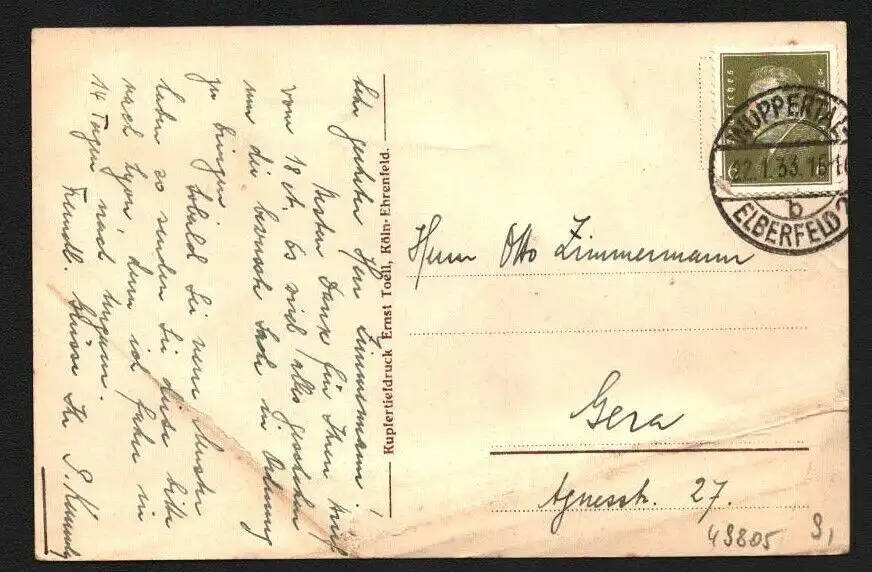 Sehr geehrter Herr Zimmermann!
Besten Dank für Ihren Brief
vom 18 ct. Es wird alles geschehen
um die bewusste Sache in Ordnung
zu bringen.
Sobald Sie neue Muster
haben so senden Sie diese bitte
nach Lyon, denn ich fahre in
14 Tagen nach Ungarn.
Freundl. Grüsse Ihr
Kupfertiefdruck Ernst Toell, Köln-Ehrenfeld.
WUPPERTAL-
22.1.33.16
b
ELBERFELD 2
Herrn Otto Zimmermann
Gera
Agnesstr. 27.
49805